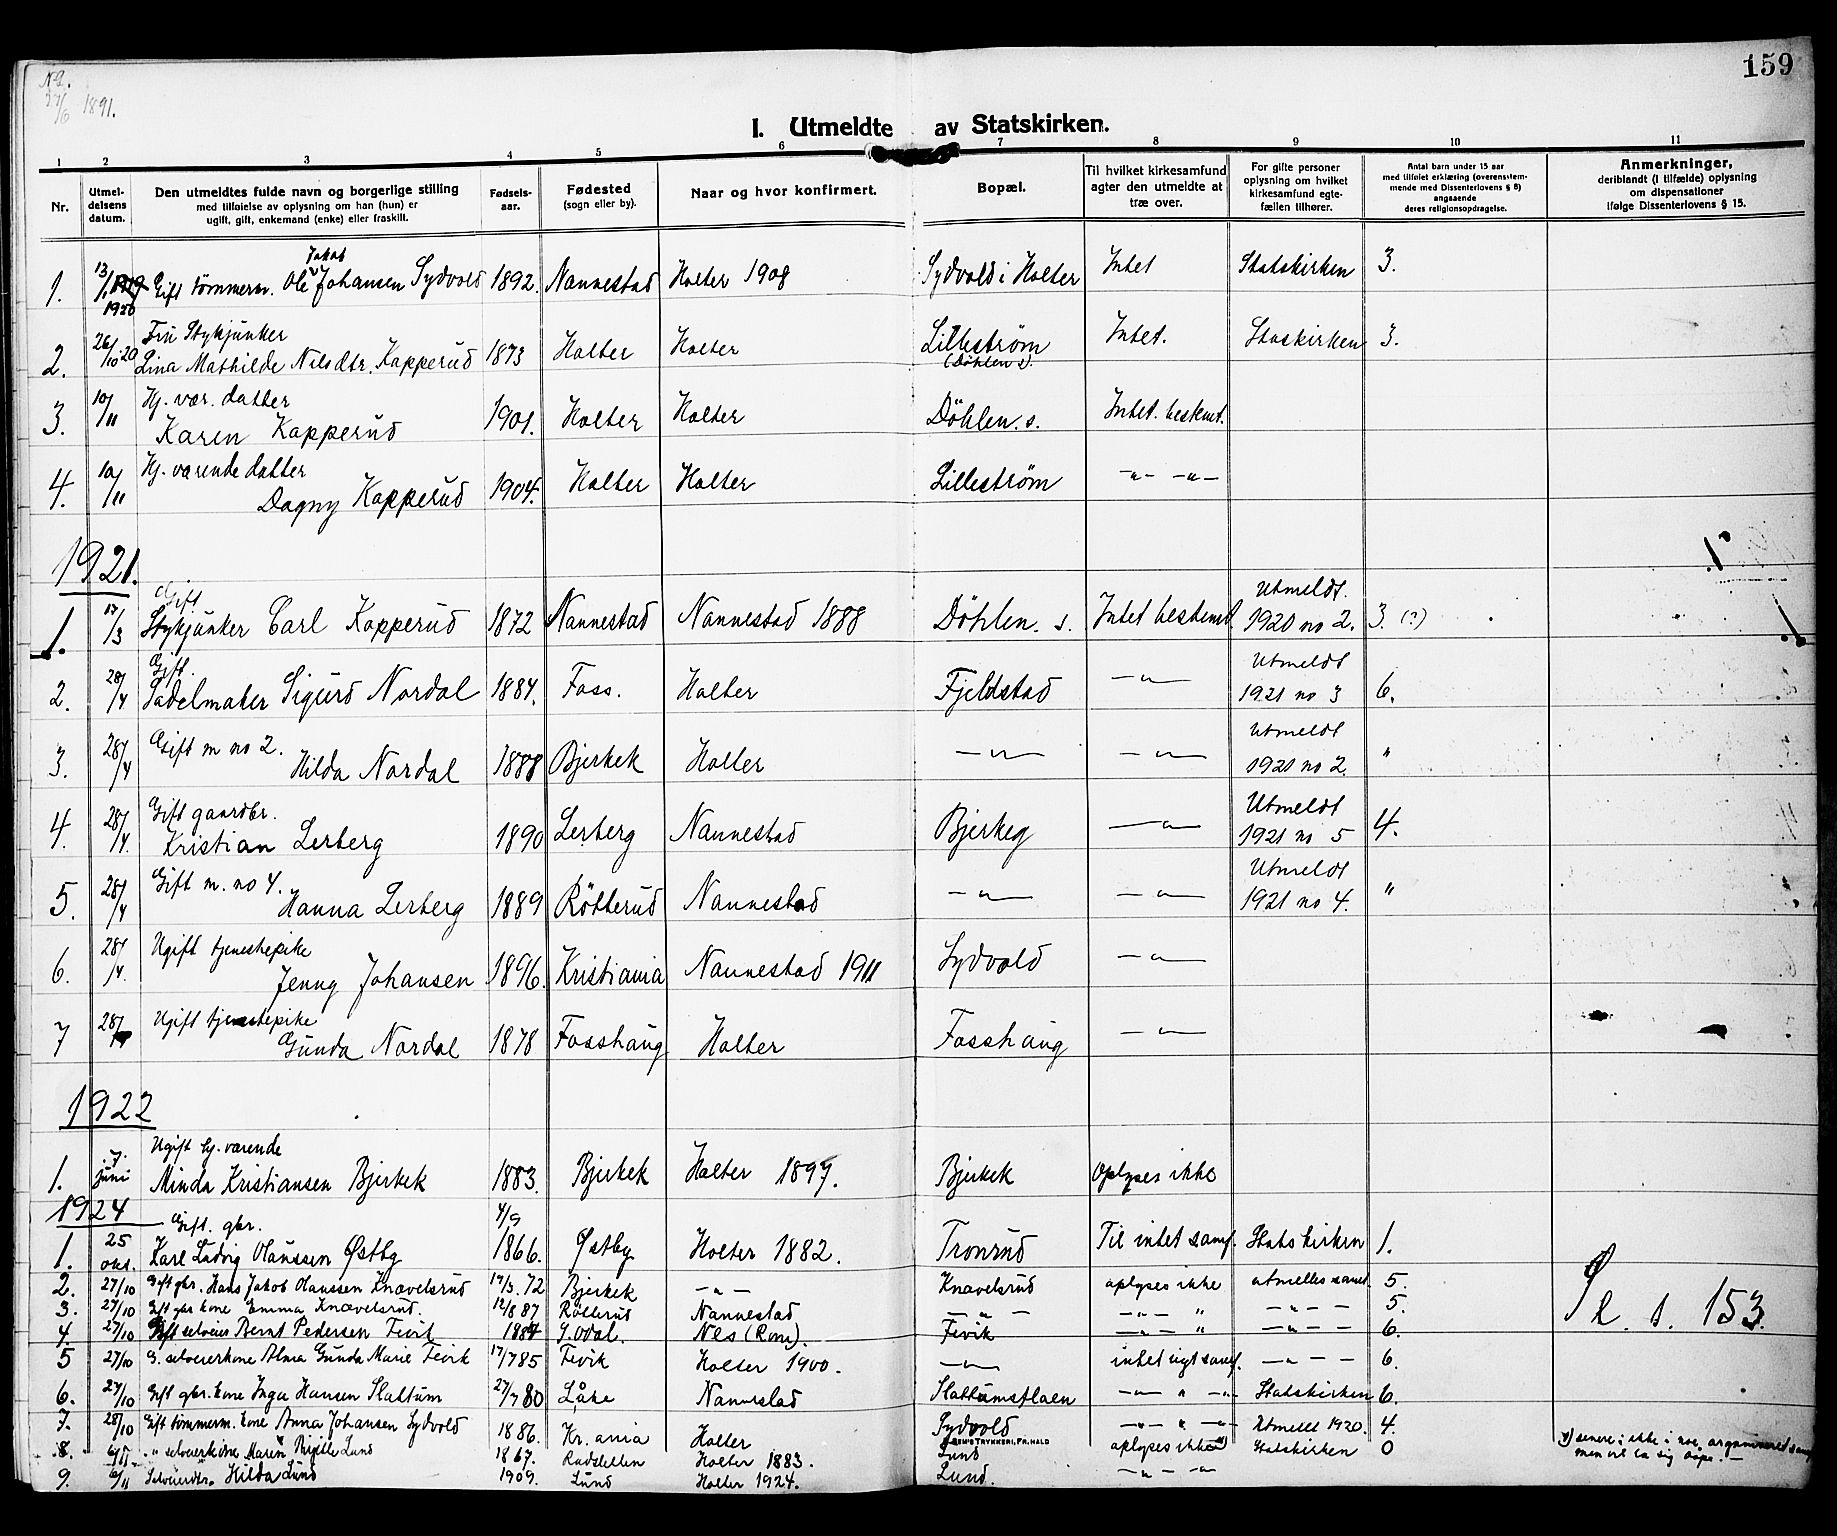 No.
27/6 1891.
159
I. Utmeldte av Statskirken.
1 2 3 4 5 6 7 8 9 10 11
Nr.
Utmeldelsens datum.
Den utmeldtes fulde navn og borgerlige stilling
med tilføielse av oplysning om han (hun) er
ugift, gift, enkemand (enke) eller fraskilt.
Fødselsaar.
Fødested
(sogn eller by).
Naar og hvor konfirmert.
Bopæl.
Til hvilket kirkesamfund
agter den utmeldte at
træ over.
For gifte personer
oplysning om hvilket
kirkesamfund egtefællen tilhører.
Antal barn under 15 aar
med tilføiet erklæring (overensstemmende med Dissenterlovens § 8)
angaaende
deres religionsopdragelse.
Anmerkninger,
deriblandt (i tilfælde) oplysning
om dispensationer
ifølge Dissenterlovens § 15.
1. 13/1 1919 1920 Gift tømmerm. Ole Jakob Johansen Sydvold 1892. Nannestad Holter 1908 Sydvold i Holter Intet Statskirken 3.
Fru Stykjunker
2. 26/10 20 Lina Mathilde Nilsdtr. Kapperud 1873 Holter Holter Lillestrøm (Döhlen s). Intet. Staskirken 3.
Hj. vær. datter
3. 10/11 Karen Kapperud 1901. Holter Holter Döhlen. s. Intet. bestemt.
Hj. værende datter
4. 10/11 Dagny Kapperud 1904. Holter Holter Lillestrøm -„- -„-
1921.
1.
Gift
1. 17/3 Stykjunker Carl Kapperud 1872 Nannestad Nannestad 1888 Döhlen. s. Intet bestemt Utmeldt. 1920 no 2. 3. (?) 1
Gift.
2. 28/4 Sadelmaker Sigurd Nordal 1884. Foss. Holter Fjeldstad -„- Utmeldt 1921 no 3 6.
Gift m no 2.
3. 28/4 Hilda Nordal 1888 Bjerkek Holter -„- -„- Utmeldt 1921 no 2. "
Gift gaardbr.
4. 28/4. Kristian Lerberg 1890 Lerberg Nannestad Bjerkeg -„- Utmeldt 1921 no 5 4.
Gift m. no 4.
5. 28/4 Hanna Lerberg 1889 Rötterud Nannestad -„- -„- Utmeldt 1921 no 4. "
Ugift tjenestepike
6. 28/4. Jenny Johansen 1896. Kristiania Nannestad 1911 Sydvold -„-
Ugift tjenestepike
7 28/4 Gunda Nordal 1878 Fosshaug Holter Fosshaug -„-
1922
Ugift hj. værende
1. 7. juni Minda Kristiansen Bjerkek 1883. Bjerkek Holter 1897. Bjerkek Oplyses ikke
1924
Gift. gbr.
1. 25 okt. Karl Ludvig Olaussen Østby 4/9 1866. Østby Holter 1882. Tronrud Til intet samf. Statskirken 1.
2. 27/10 Gift gbr. Hans Jakob Olaussen Knævelsrud 14/3. 72 Bjerkek -„- Knævelsrud oplyses ikke utmeldes samt. 5.
3. 27/10 Gift gbr kone Emma Knævelsrud. 12/8 87 Rötterud Nannestad -„- -„- " -„- - 5.
4. 27/10 Gift selveier Bernt Pedersen Fevik 1884 S. Odal. Nes (Rom). Fevik -„- " -„- - 6.
5 27/10 G. selveierkone Alma Gunda Marie Fevik 17/7 85 Fevik Holter 1900. -„- intet nyt samf. -„- - 6.
6. 27/10 Gift gbr. kone Inga Hansen Slattum 27/7 80 Låke Nannestad Slattumsflaen -„- " -„- Statskirken 6.
7. 28/10 Gift tømmerm. kone Anna Johansen Sydvold 1886. Kr.ania Holter Sydvold -„- " -„- Utmeldt 1920. 4.
8. 6/11 „ selveierkone Maren Birgitte Lund 1867. Rudsletten Holter 1883. Lund oplyses ikke Statskirken 0
9. 6/11 Selveierdtr. Hilda Lund 1909. Lund Holter 1924. Lund. -„- -„-
Se s. 153.
TRYKKERI, FR.HALD
senere: ikke i noe organiseret samf.
men vil la sig døpe. —